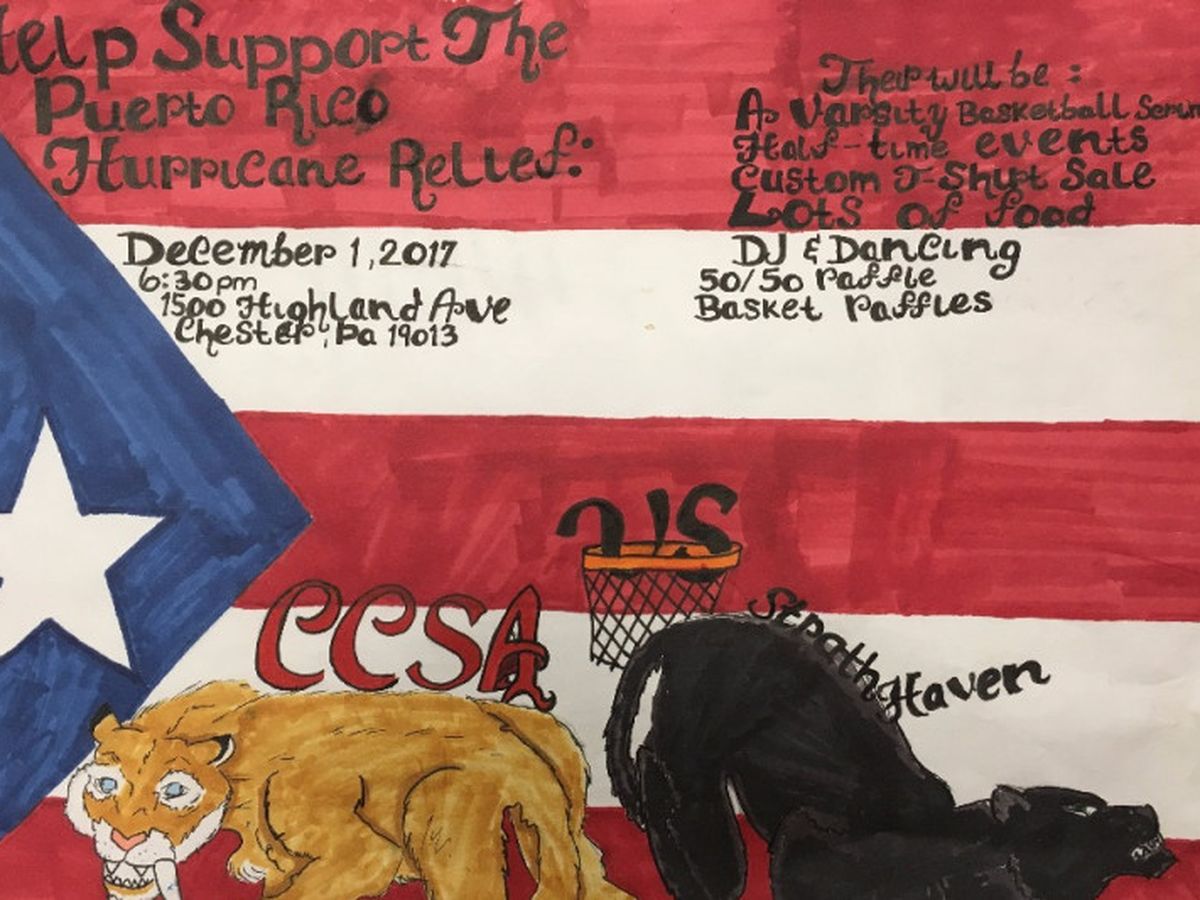 Help Support The
Puerto Rico
Hurricane Relief:
December 1, 2017
6:30pm
1500 Highland Ave
Chester, Pa 19013
Their will be :
A Varsity Basketball
Half-time events
Custom T-Shirt Sale
Lots of food
DJ & Dancing
50/50 raffle
Basket raffles
CCSA
VS
Strath Haven